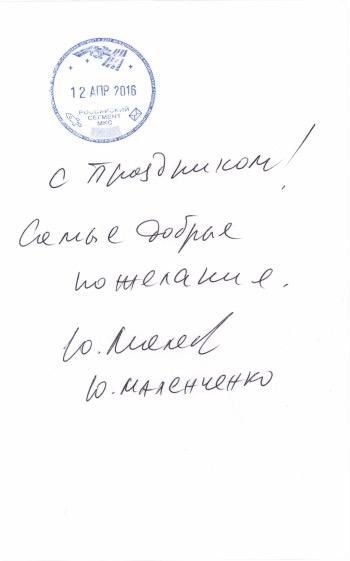 12 АПР 2016
РОССИЙСКИЙ
СЕГМЕНТ
МКС
с Праздником!
Самые добрые
пожелания.
Ю. Мален
Ю. МАЛЕНЧЕНКО